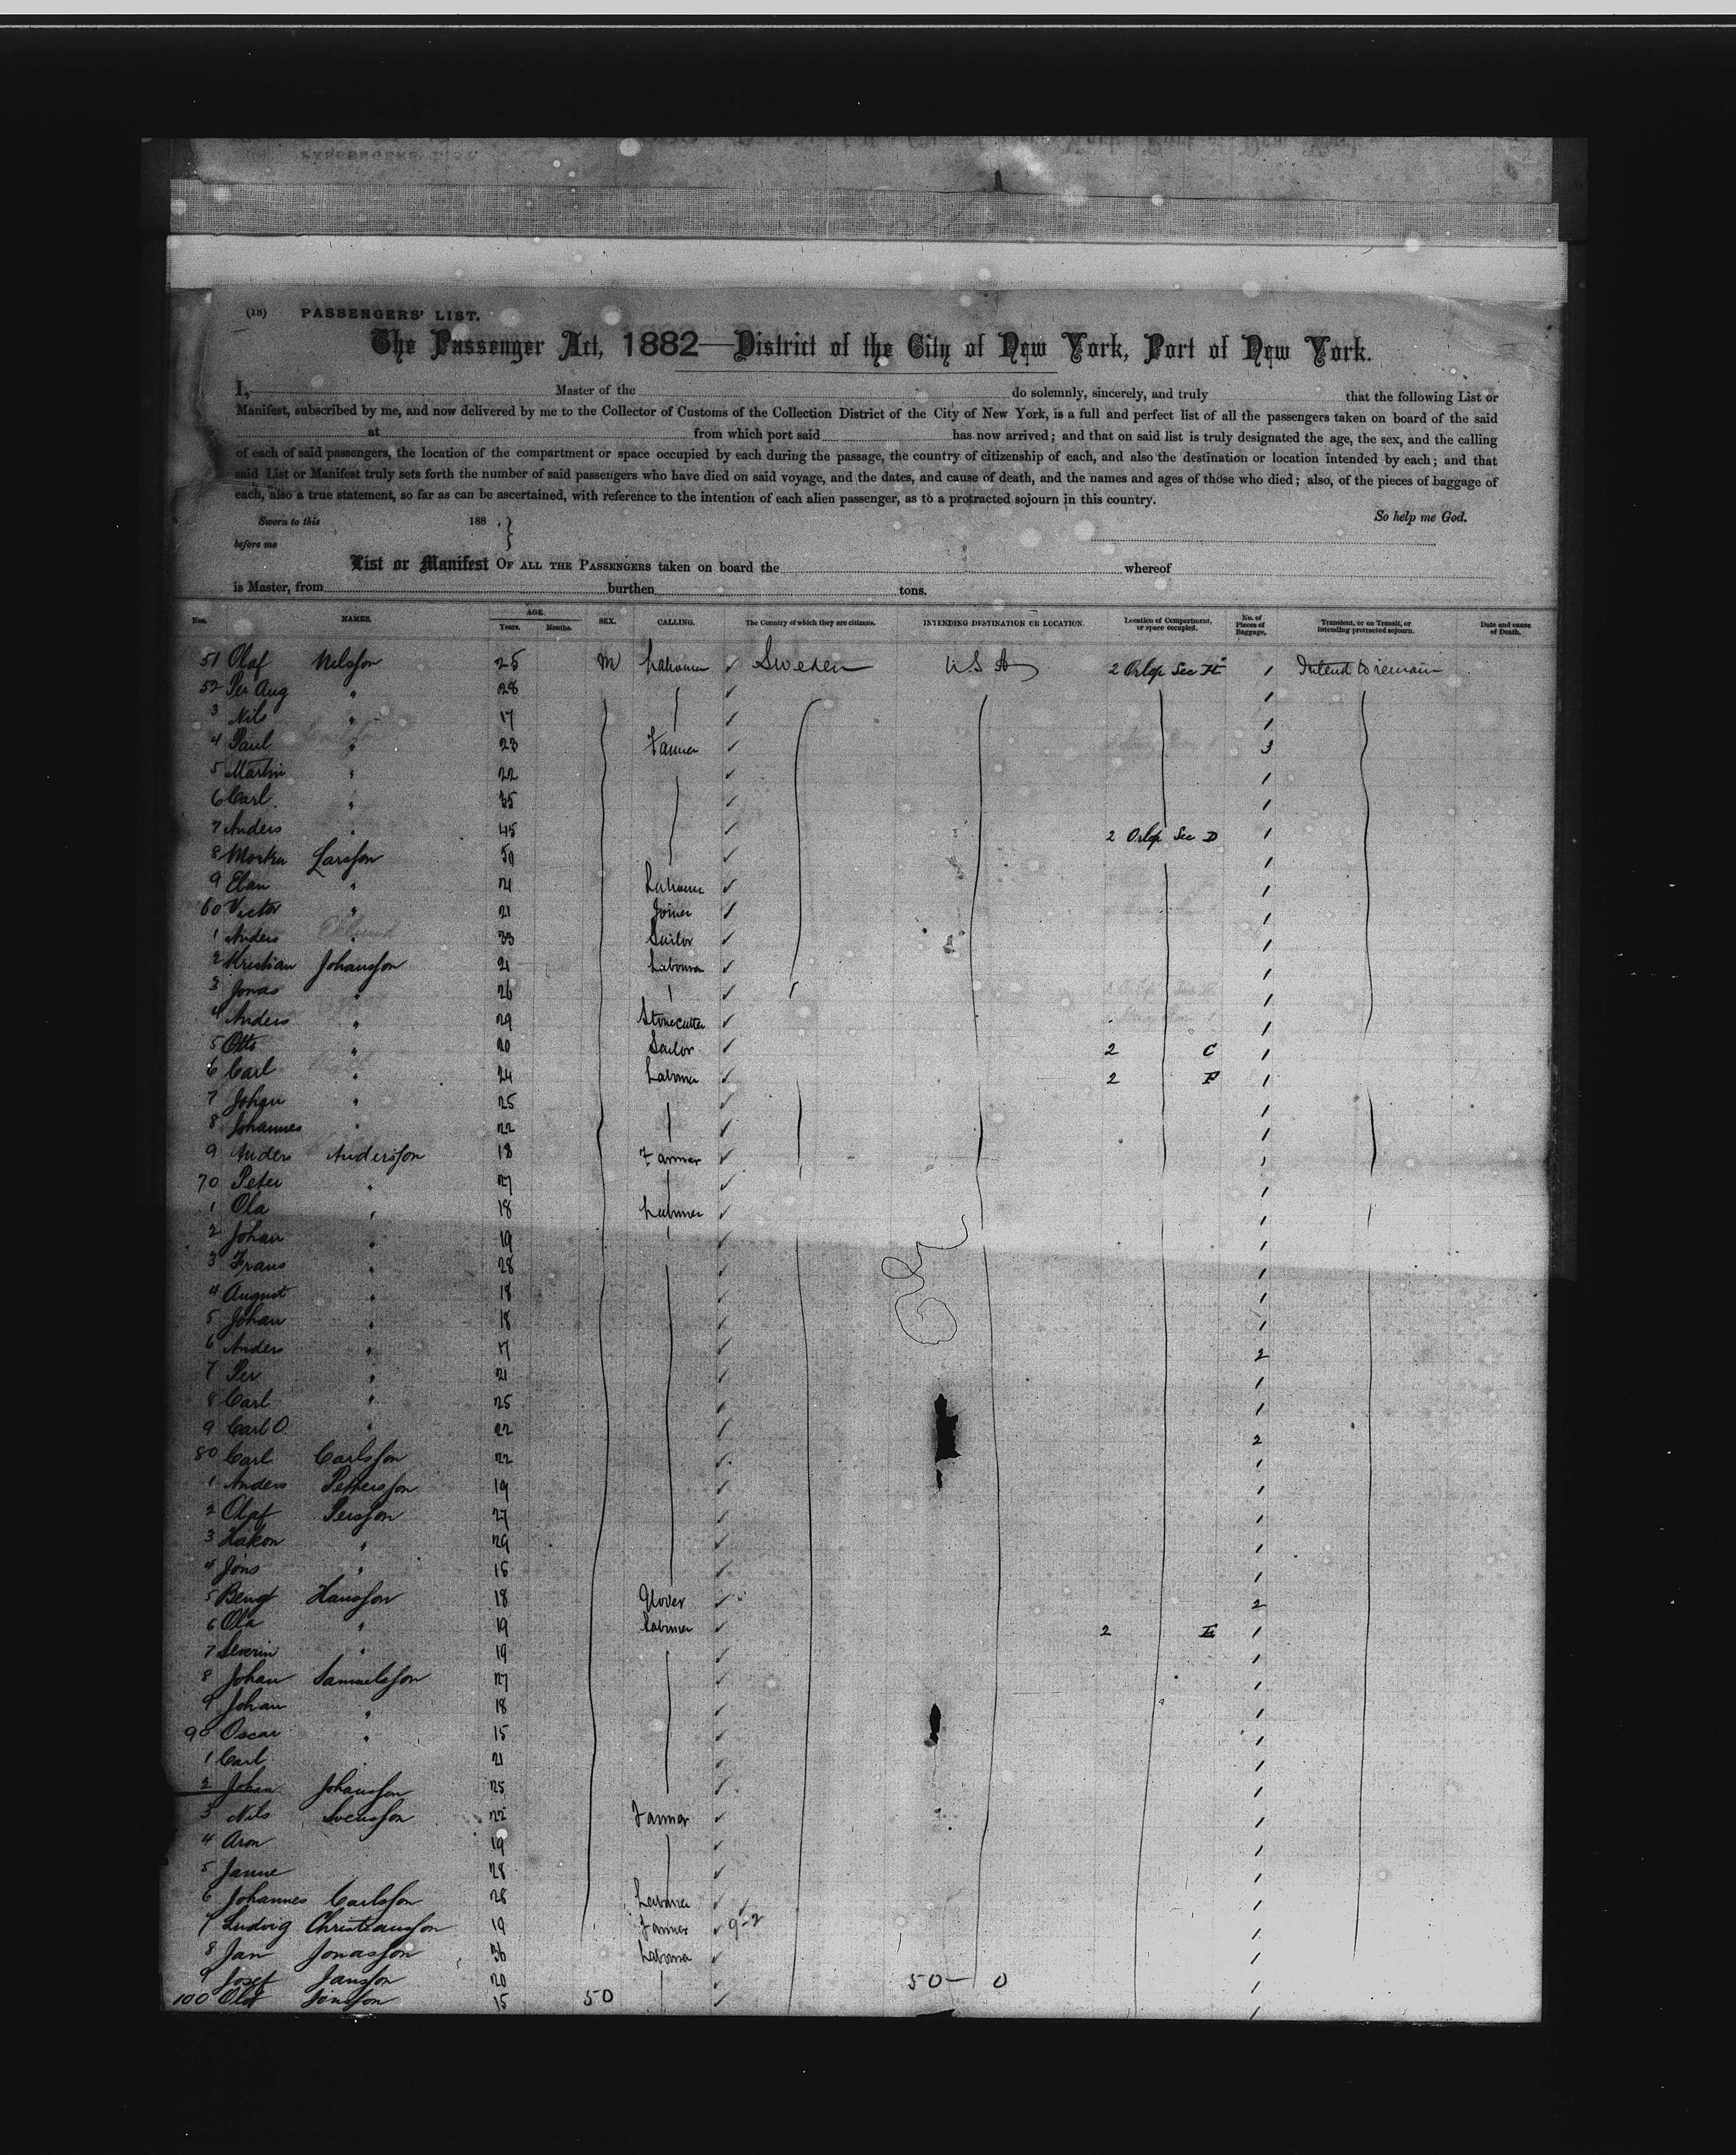 (18) PASSENGERS' LIST.
The Passenger Act, 1882—District of the City of New York, Port of New York.
I, Master of the do solemnly, sincerely, and truly that the following List or
Manifest, subscribed by me, and now delivered by me to the Collector of Customs of the Collection District of the City of New York, is a full and perfect list of all the passengers taken on board of the said
at from which port said has now arrived; and that on said list is truly designated the age, the sex, and the calling
of each of said passengers, the location of the compartment or space occupied by each during the passage, the country of citizenship of each, and also the destination or location intended by each; and that
said List or Manifest truly sets forth the number of said passengers who have died on said voyage, and the dates, and cause of death, and the names and ages of those who died; also, of the pieces of baggage of
each, also a true statement, so far as can be ascertained, with reference to the intention of each alien passenger, as to a protracted sojourn in this country.
Sworn to this 188 . } So help me God.
before me
List or Manifest OF ALL THE PASSENGERS taken on board the whereof
is Master, from burthen tons.
Nos. NAMES. AGE. Years. Months. SEX. CALLING. The Country of which they are citizens. INTENDING DESTINATION OR LOCATION. Location of Compartment, or space occupied. No. of Pieces of Baggage. Transient, or on Transit, or intending protracted sojourn. Date and cause of Death.
51 Olaf Nilsson 25 M Labourer ✓ Sweden U S A 2 Orlop Sec H 1 Intend to remain
52 Per Aug " 28 ✓ 1
3 Nils " 17 ✓ 1
4 Paul " 23 Farmer ✓ 3
5 Martin " 22 ✓ 1
6 Carl " 35 ✓ 1
7 Anders " 45 ✓ 2 Orlop Sec D 1
8 Larsson 50 ✓ 1
9 " 21 Labourer ✓ 1
60 Victor " 21 Joiner ✓ 1
1 Anders " 33 Sailor ✓ 1
2 Kristian Johansson 21 Labourer ✓ 1
3 Jonas " 26 ✓ 1
4 Anders " 29 Stonecutter ✓ 1
5 Otto " 20 Sailor ✓ 2 C 1
6 Carl " 24 Labourer ✓ 2 F 1
7 Johan " 25 ✓ 1
8 Johannes " 22 ✓ 1
9 Anders Andersson 18 Farmer ✓ 1
70 Peter " 27 ✓ 1
1 Ola " 18 Labourer ✓ 1
2 Johan " 19 ✓ 1
3 Frans " 28 ✓ 1
4 August " 18 ✓ 1
5 Johan " 18 ✓ 1
6 Anders " 17 ✓ 2
7 Per " 21 ✓ 1
8 Carl " 25 ✓ 1
9 Carl O. " 22 ✓ 2
80 Carl Carlsson 22 ✓ 1
1 Anders Pettersson 19 ✓ 1
2 Olof Persson 27 ✓ 1
3 Hakon " 29 ✓ 1
4 Jöns " 15 ✓ 1
5 Bengt Hansson 18 Glover ✓ 2
6 Ola " 19 Labourer ✓ 2 E 1
7 Severin " 19 ✓ 1
8 Johan Samuelsson 27 ✓ 1
9 Johan " 18 ✓ 1
90 Oscar " 15 ✓ 1
1 Carl 21 ✓ 1
2 Johan Johansson 25 ✓ 1
3 Nils Svensson 22 Farmer ✓ 1
4 Aron 19 ✓ 1
5 Janne 28 ✓ 1
6 Johannes Carlsson 28 Labourer ✓ 1
7 Ludvig Christiansson 19 Farmer ✓ 9-2 1
8 Jan Jonasson 36 Labourer ✓ 1
9 Josef Jansson 20 ✓ 50 — 0 1
100 Olof Jönsson 15 50 ✓ 1